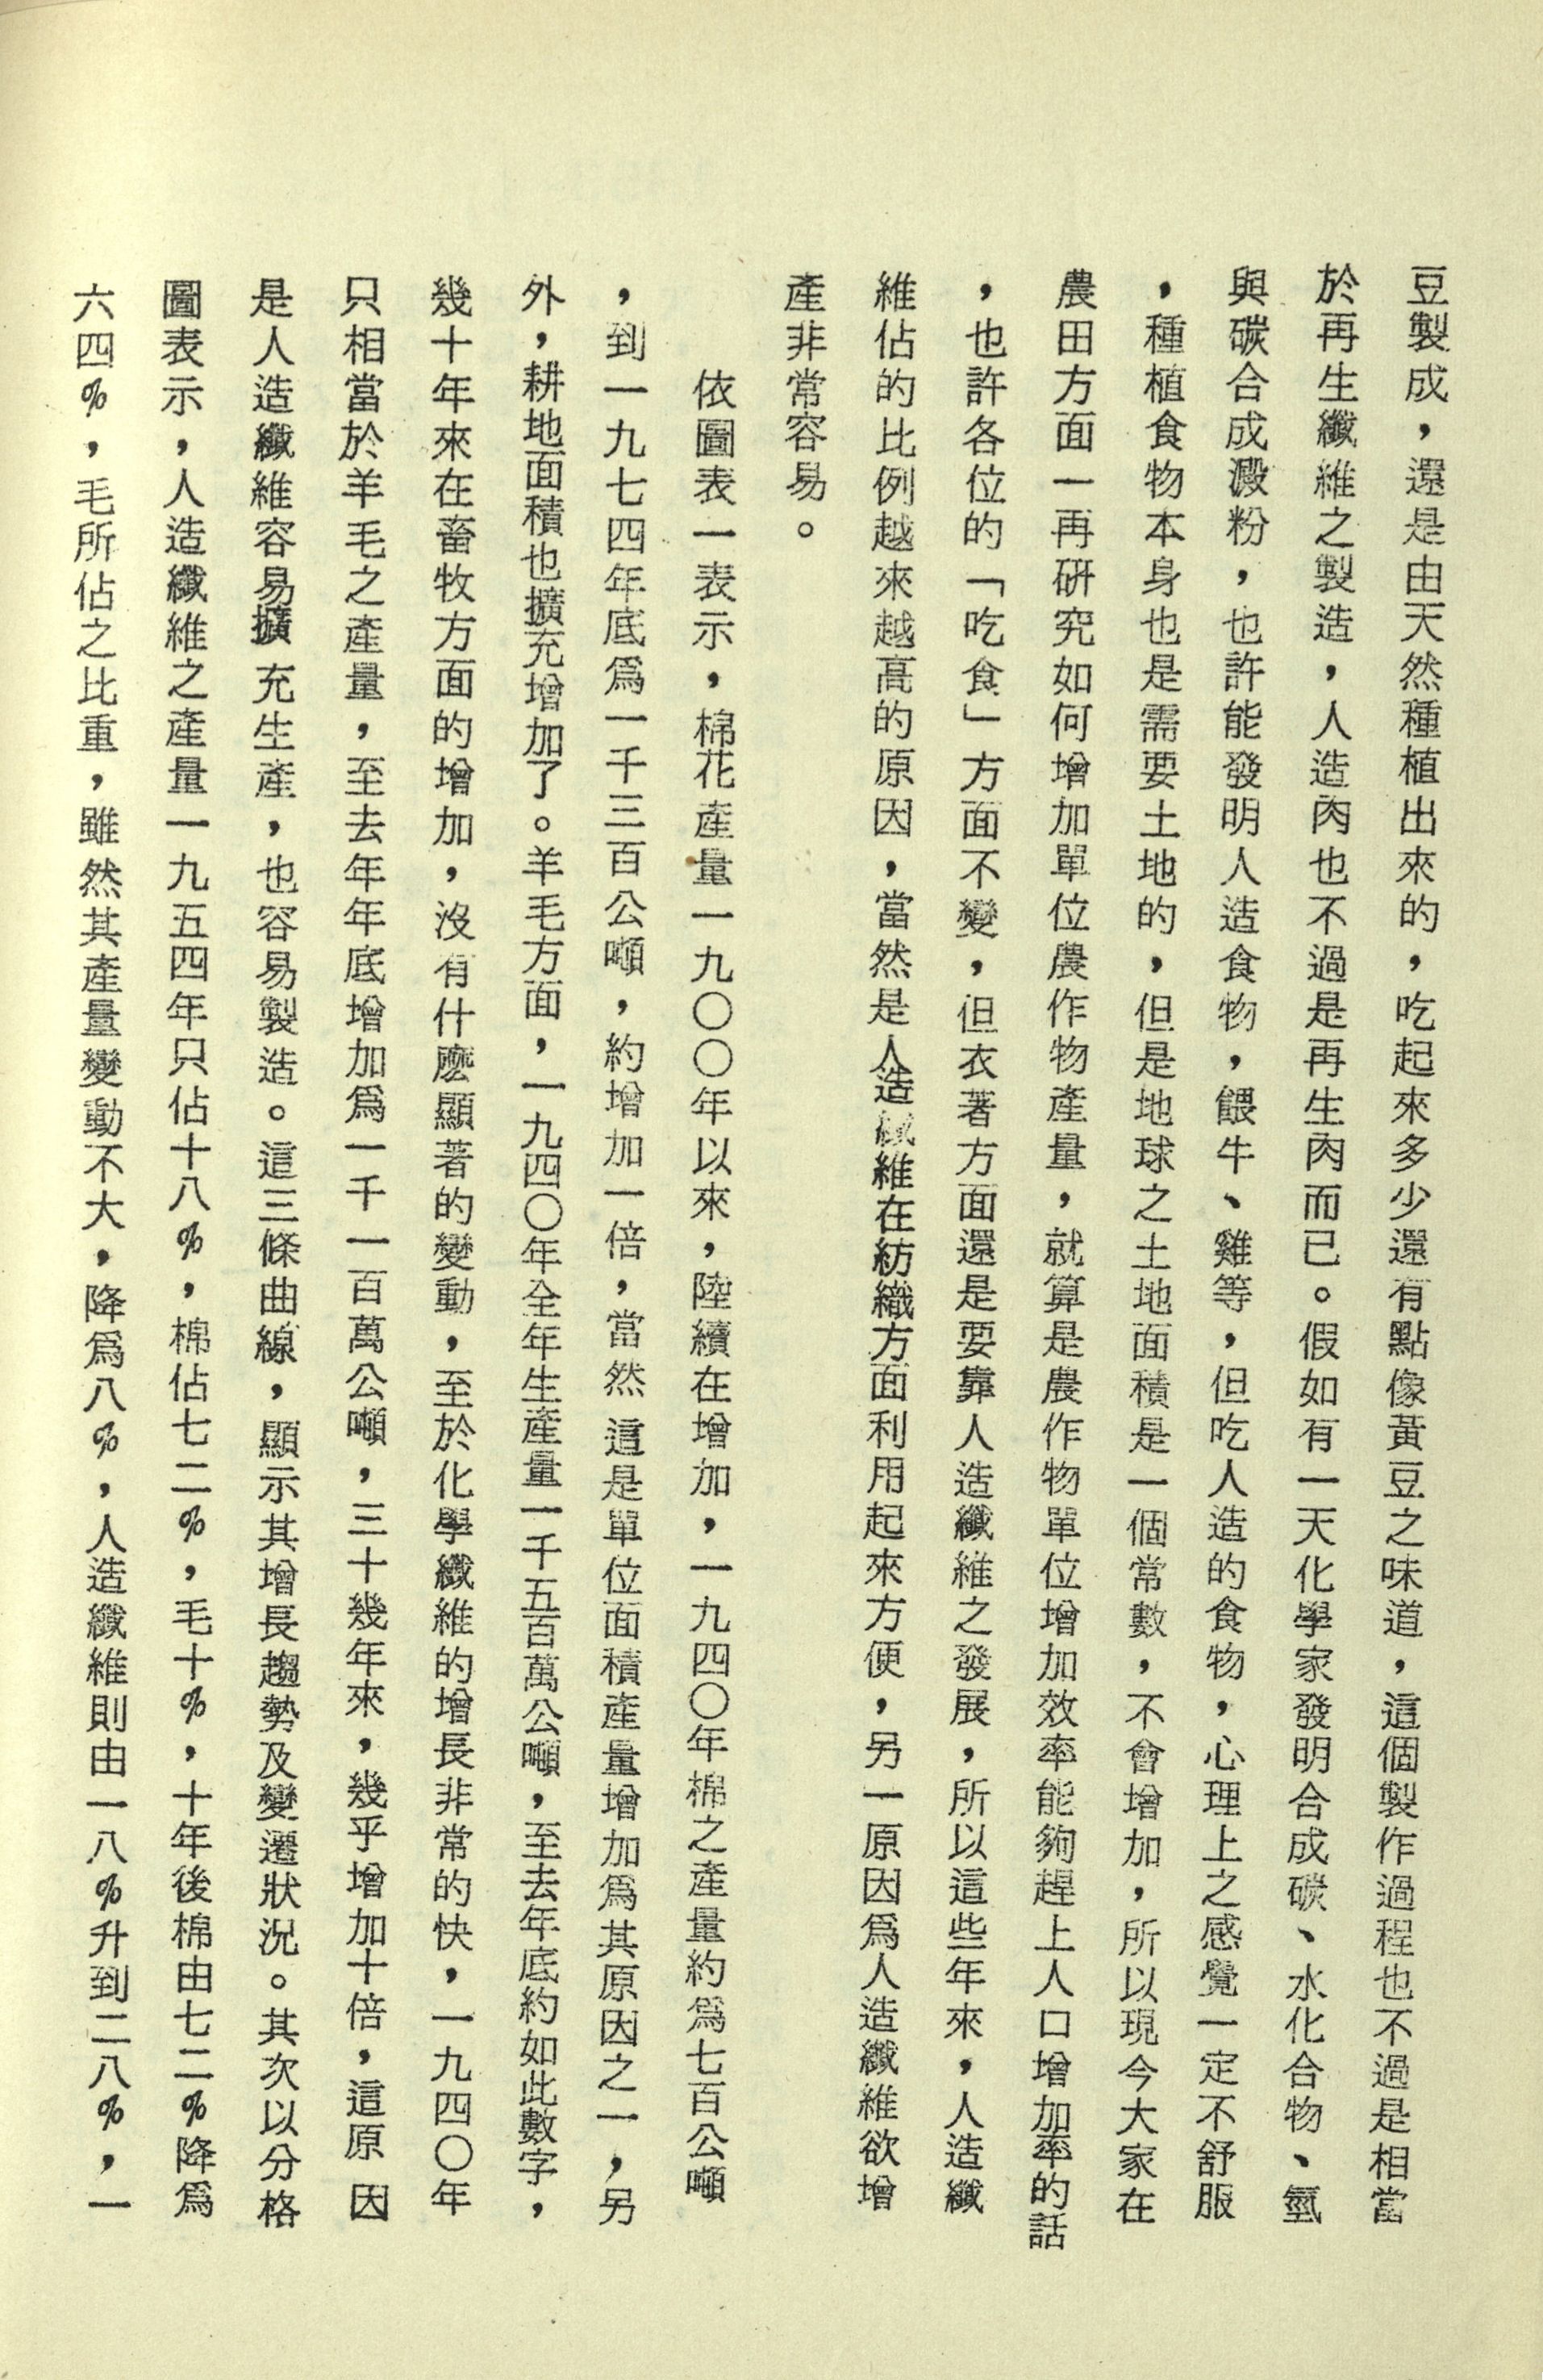 豆製成，還是由天然種植出來的，吃起來多少還有點像黃豆之味道，這個製作過程也不過是相當
於再生纖維之製造，人造肉也不過是再生肉而已。假如有一天化學家發明合成碳、水化合物、氫
與碳合成澱粉，也許能發明人造食物，餵牛、雞等，但吃人造的食物，心理上之感覺一定不舒服
，種植食物本身也是需要土地的，但是地球之土地面積是一個常數，不會增加，所以現今大家在
農田方面一再研究如何增加單位農作物產量，就算是農作物單位增加效率能夠趕上人口增加率的話
，也許各位的「吃食」方面不變，但衣著方面還是要靠人造纖維之發展，所以這些年來，人造纖
維佔的比例越來越高的原因，當然是人造纖維在紡織方面利用起來方便，另一原因為人造纖維欲增
產非常容易。
依圖表一表示，棉花產量一九〇〇年以來，陸續在增加，一九四〇年棉之產量約為七百公噸
，到一九七四年底為一千三百公噸，約增加一倍，當然這是單位面積產量增加為其原因之一，另
外，耕地面積也擴充增加了。羊毛方面，一九四〇年全年生產量一千五百萬公噸，至去年底約如此數字，
幾十年來在畜牧方面的增加，沒有什麼顯著的變動，至於化學纖維的增長非常的快，一九四〇年
只相當於羊毛之產量，至去年年底增加為一千一百萬公噸，三十幾年來，幾乎增加十倍，這原因
是人造纖維容易擴充生產，也容易製造。這三條曲線，顯示其增長趨勢及變遷狀況。其次以分格
圖表示，人造纖維之產量一九五四年只佔十八%，棉佔七二%，毛十%，十年後棉由七二%降為
六四%，毛所佔之比重，雖然其產量變動不大，降為八%，人造纖維則由一八%升到二八%，一